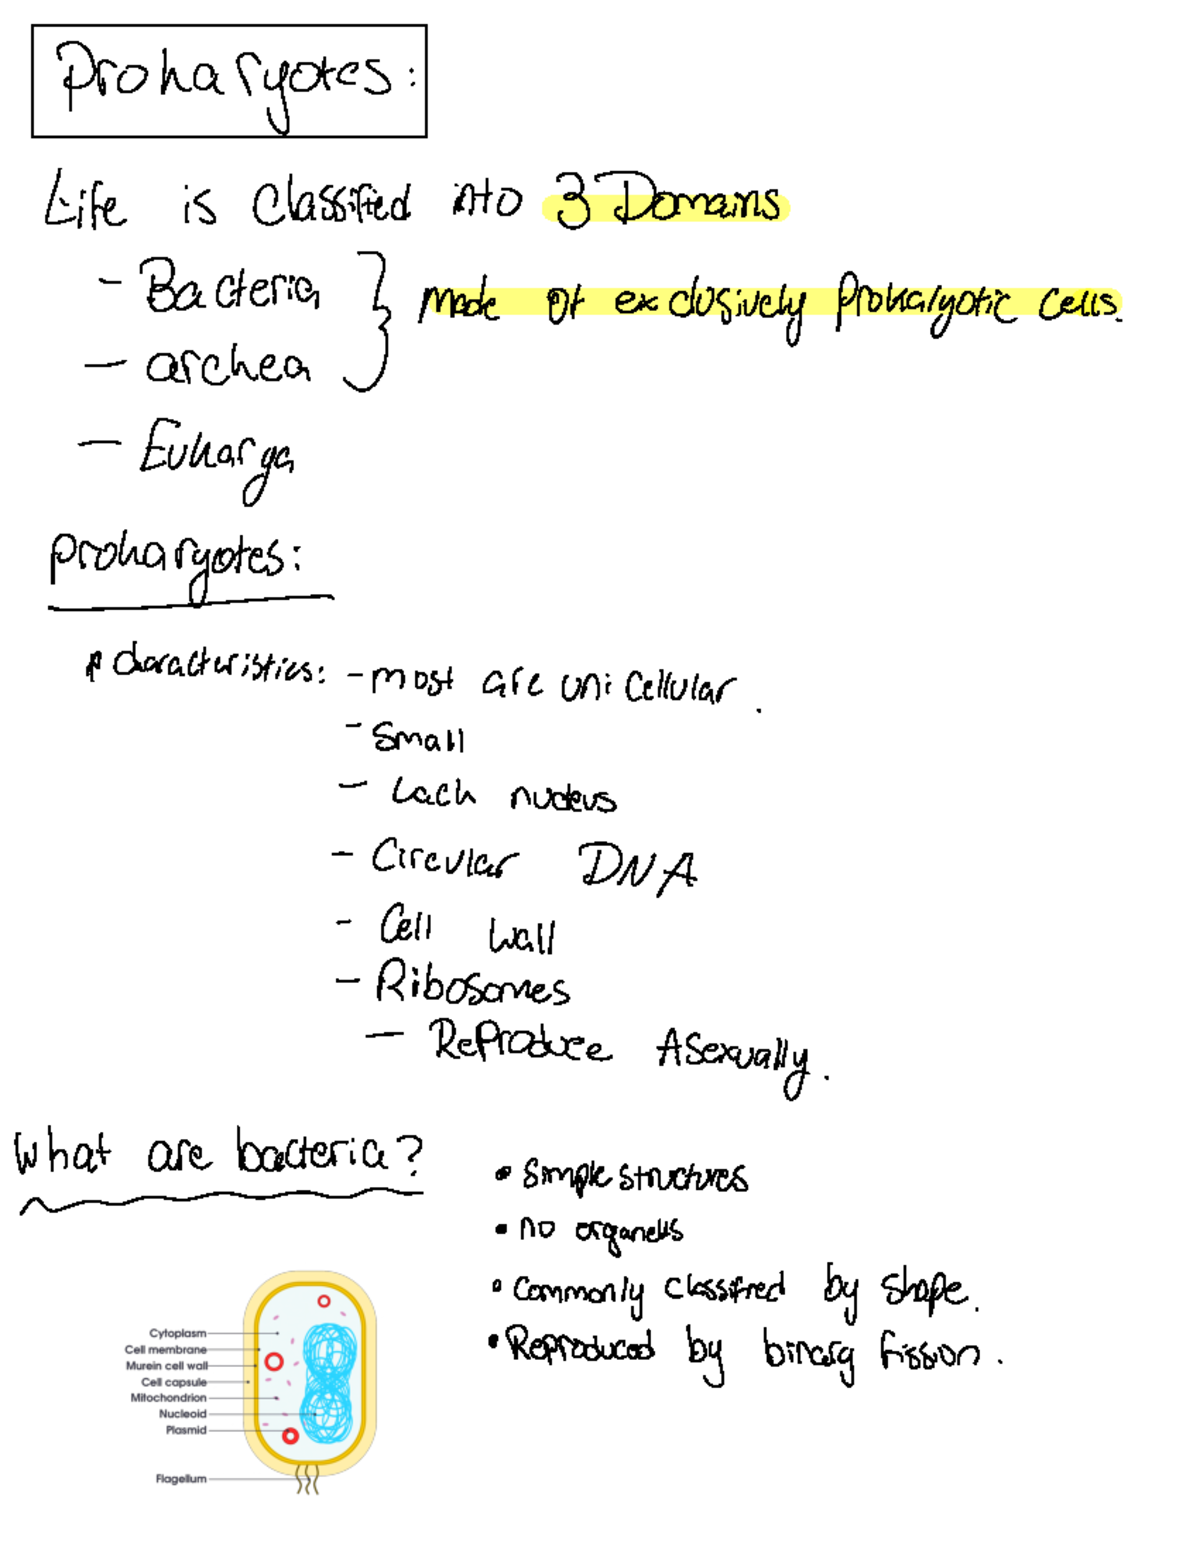 Prokaryotes:
Life is classified into 3 Domains
- Bacteria
made of exclusively Prokaryotic cells.
- archea
- Eukarya
prokaryotes:
characteristics: - most are unicellular.
- Small
- Lack nucleus
- Circular DNA
- Cell wall
- Ribosomes
- Reproduce Asexually.
What are bacteria?
• Simple structures
• no organells
• Commonly classified by shape.
• Reproduced by binary fission.
Cytoplasm
Cell membrane
Murein cell wall
Cell capsule
Mitochondrion
Nucleoid
Plasmid
Flagellum